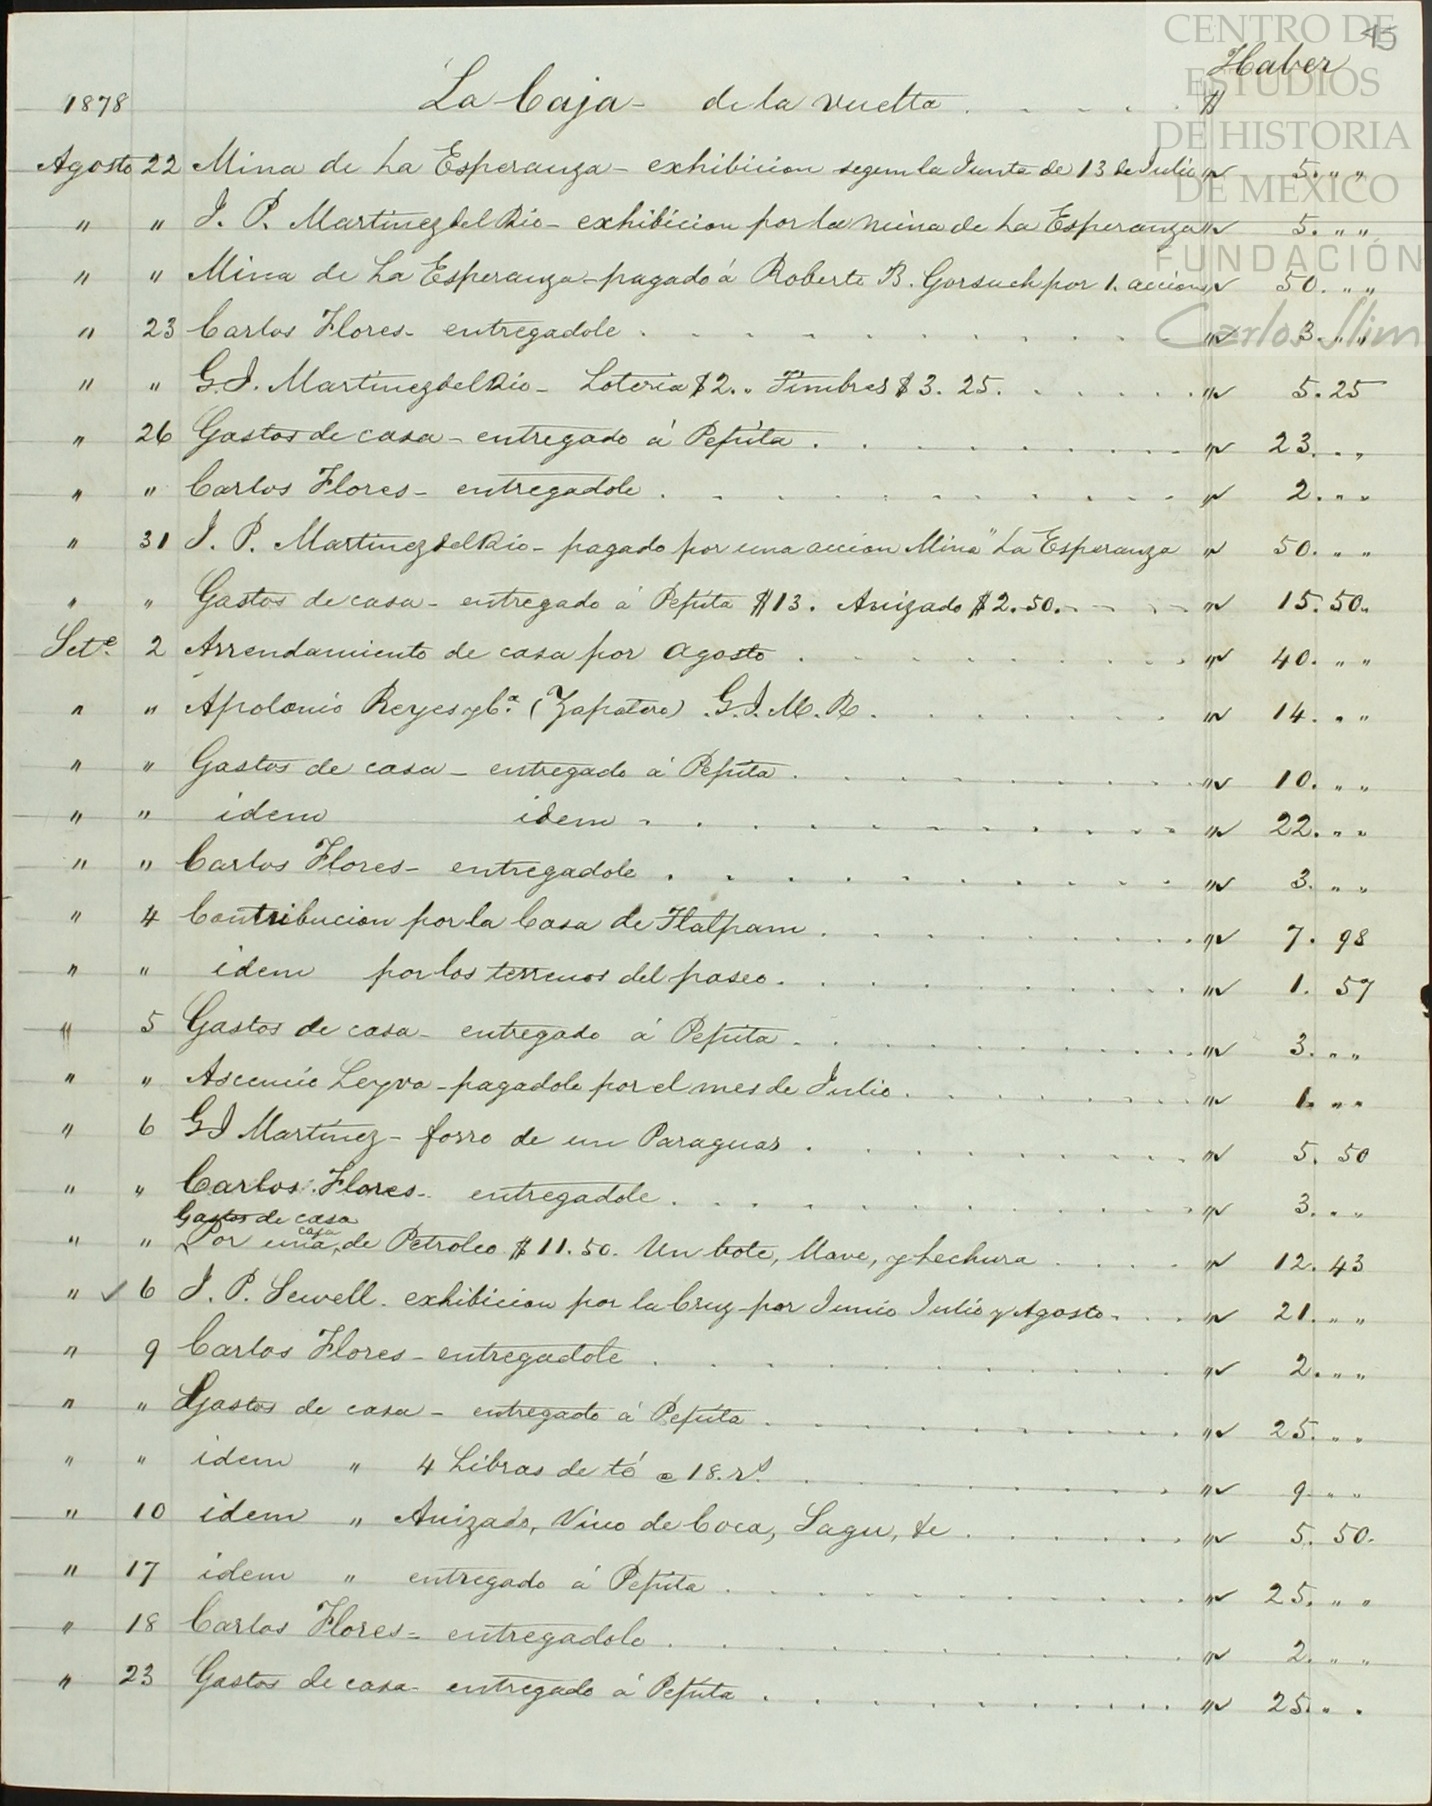 CENTRO DE
ESTUDIOS
DE HISTORIA
DE MEXICO
FUNDACIÓN
Carlos Slim
45
Haber
1878 La Caja - de la vuelta . . . . . $
Agosto 22 Mina de La Esperanza - exhibicion segun la Junta de 13 de Julio " 5. " "
" " J. P. Martinez del Rio - exhibicion por la mina de La Esperanza " 5. " "
" " Mina de La Esperanza - pagado á Roberto B. Gorsuch por 1. accion " 50. " "
" 23 Carlos Flores - entregadole " 3. " "
" " G. I. Martinez del Rio - Loteria $2. " Timbres $3. 25. " 5. 25
" 26 Gastos de casa - entregado á Pepita " 23. " "
" " Carlos Flores - entregadole " 2. " "
" 31 J. P. Martinez del Rio - pagado por una accion Mina "La Esperanza " 50. " "
" " Gastos de casa - entregado á Pepita $13. Anizado $2.50. " 15. 50.
Sete. 2 Arrendamiento de casa por agosto " 40. " "
" " Apolonio Reyes y Ca. (Zapatero) G. I. M. R. " 14. " "
" " Gastos de casa - entregado á Pepita " 10. " "
" " idem idem " 22. " "
" " Carlos Flores - entregadole " 3. " "
" 4 Contribucion por la Casa de Tlalpam " 7. 98
" " idem por los terrenos del paseo " 1. 57
" 5 Gastos de casa - entregado á Pepita " 3. " "
" " Ascencio Leyva - pagadole por el mes de Julio " 1. " "
" 6 G I Martinez - forro de un Paraguas " 5. 50
" " Carlos Flores - entregadole " 3. " "
Gastos de casa
" " Por una caja de Petroleo $11.50. Un bote, llave, y hechura " 12. 43
" ✓ 6 J. P. Sewell. exhibicion por la Cruz - por Junio Julio y Agosto " 21. " "
" 9 Carlos Flores - entregadole " 2. " "
" " Gastos de casa - entregado á Pepita " 25. " "
" " idem " 4 Libras de té @ 18. rs. " 9. " "
" 10 idem " Anizado, Vino de Coca, Sagu, &c " 5. 50.
" 17 idem " entregado á Pepita " 25. " "
" 18 Carlos Flores - entregadole " 2. " "
" 23 Gastos de casa - entregado á Pepita " 25. " "